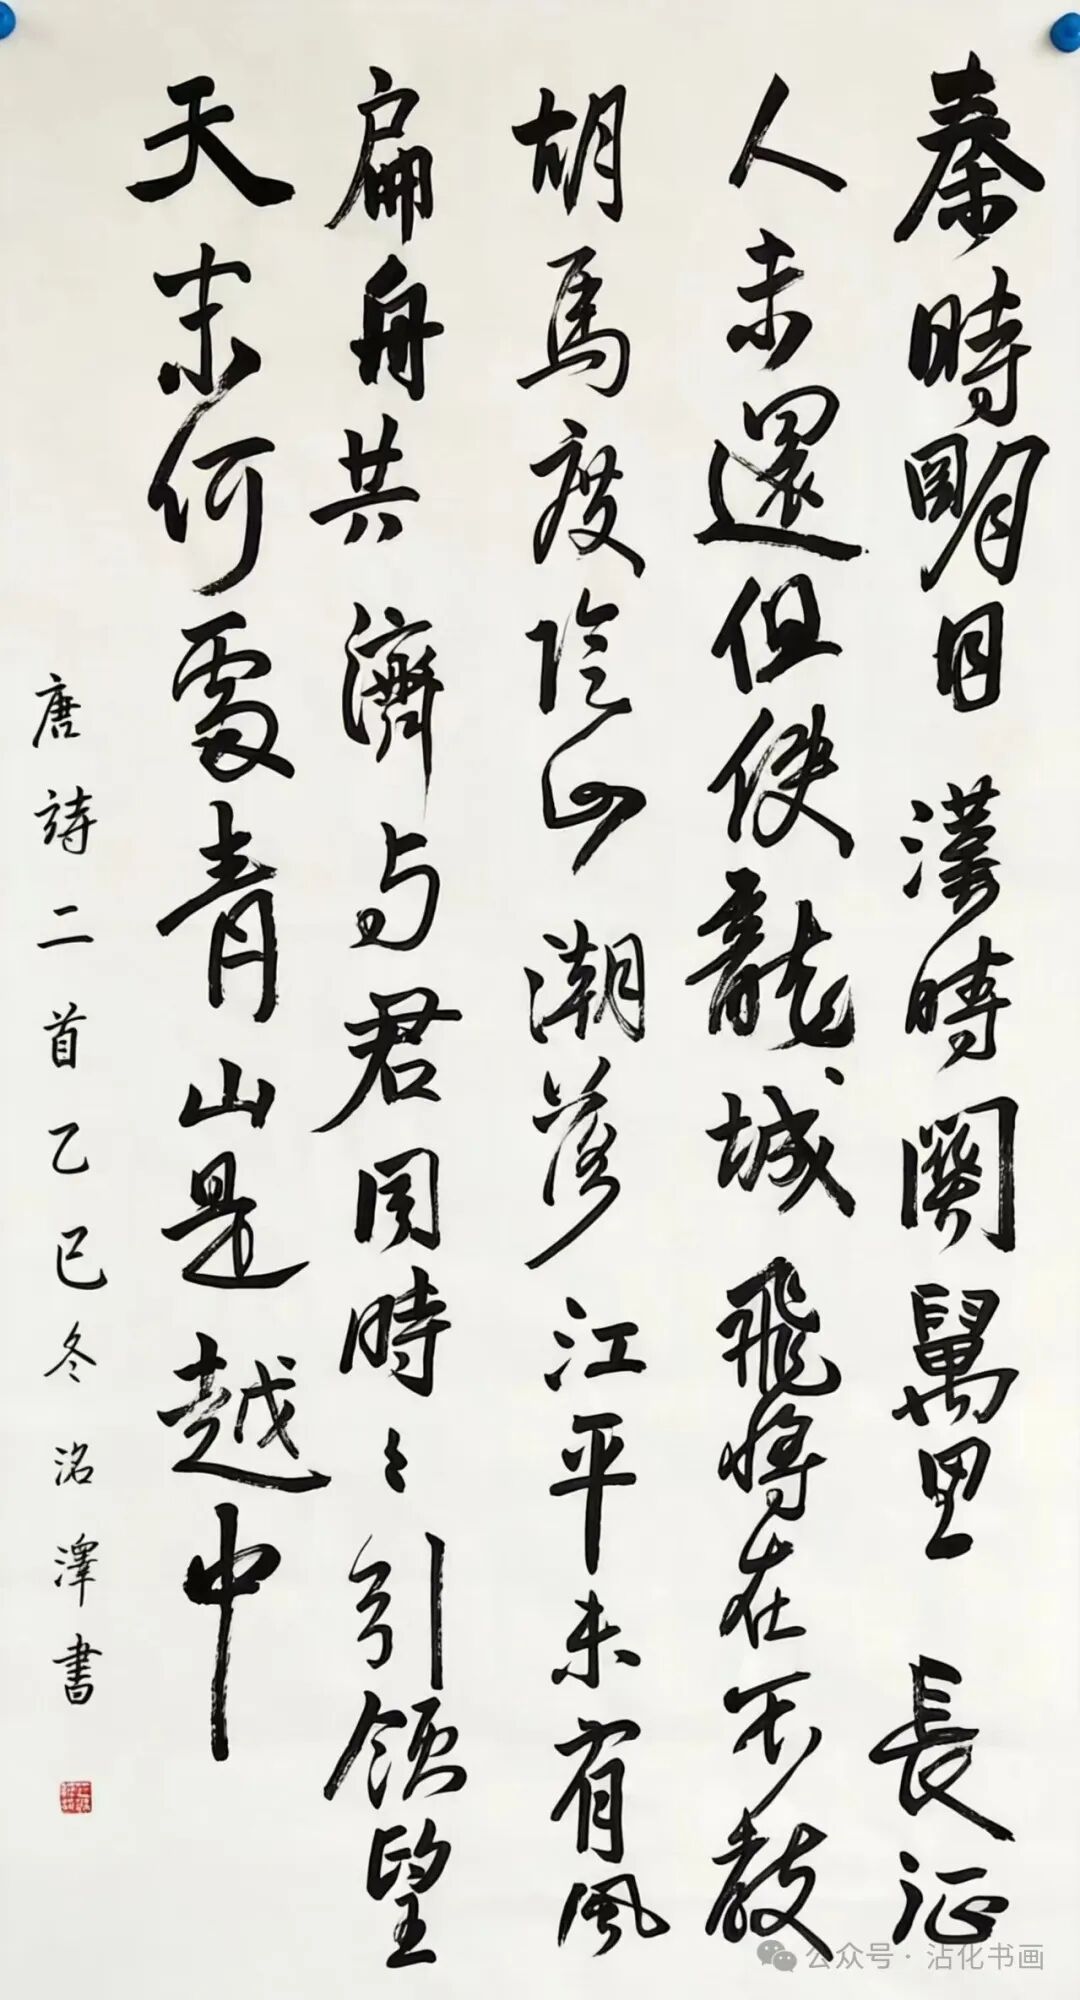 秦時明月漢時關萬里長征
人未還但使龍城飛將在不教
胡馬度陰山潮落江平未有風
扁舟共濟与君同時時〻引領望
天末何處青山是越中
唐詩二首乙巳冬洺澤書
公众号·沾化书画